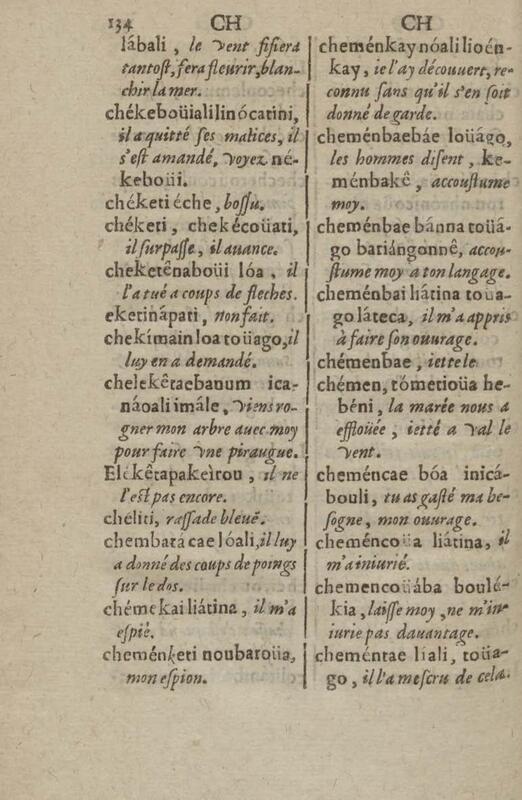 134 CH CH
lábali, le vent sifiera
tantost, fera fleurir, blan-
chir la mer.
chékeboüialilinócatini,
il a quitté ses malices, il
s'est amandé, voyez né-
keboüi.
chéketi éche, bossu.
chéketi, chekécoüati,
il surpasse, il auance.
cheketênaboüi lóa, il
l'a tué a coups de fleches.
eketinápati, non fait.
chekímain loa toüago, il
luy en a demandé.
chelekêtaebanum ica-
náoali imále, viens ro-
gner mon arbre auec moy
pour faire vne piraugue.
Elekêtapakeìrou, il ne
l'est pas encore.
chéliti, rassade bleuë.
chembatácae lóali, il luy
a donné des coups de poings
sur le dos.
chémekai liátina, il m'a
espié.
cheménketi noubaroüa,
mon espion.
cheménkay nóali lioén-
kay, ie l'ay découuert, re-
connu sans qu'il s'en soit
donné de garde.
cheménbaebáe loüágo,
les hommes disent, ke-
ménbakê, accoustume
moy.
cheménbae bánna toüá-
go bariángonnê, accou-
stume moy a ton langage.
cheménbai liátina toua-
go láteca, il m'a appris
à faire son ouurage.
chémenbae, iette le
chémen, tómetioüa he-
béni, la marée nous a
effloüée, ietté a val le
vent.
cheméncae bóa inicá-
bouli, tu as gasté ma be-
sogne, mon ouurage.
cheméncoüa liátina, il
m'a iniurié.
chemencoüába boulé-
kia, laisse moy, ne m'in-
iurie pas dauantage.
cheméntae líali, toüa-
go, il l'a mescru de cela.